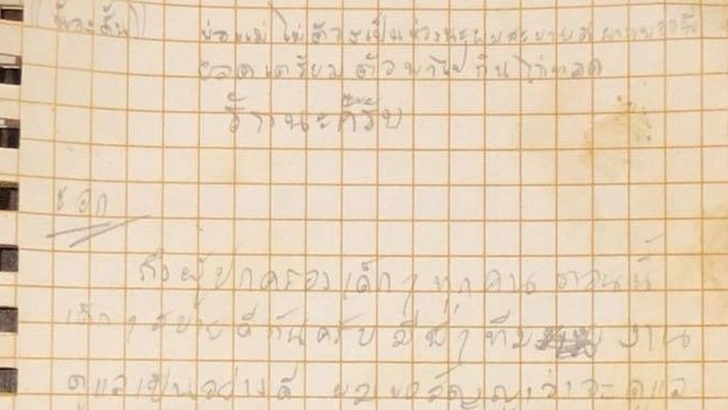 (น้องตั้น) พ่อแม่ไม่ต้องเป็นห่วงนะผมสบายดี
ยอดเตรียมตัวพาไปกินไก่ทอด
รักนะครับ
เอก
ถึงผู้ปกครองเด็กๆ ทุกคน ตอนนี้
เด็กๆ สบายดีกันครับ มีพี่ๆ ทีม งาน
ดูแลเป็นอย่างดี ผมขอสัญญาว่าจะดูแล